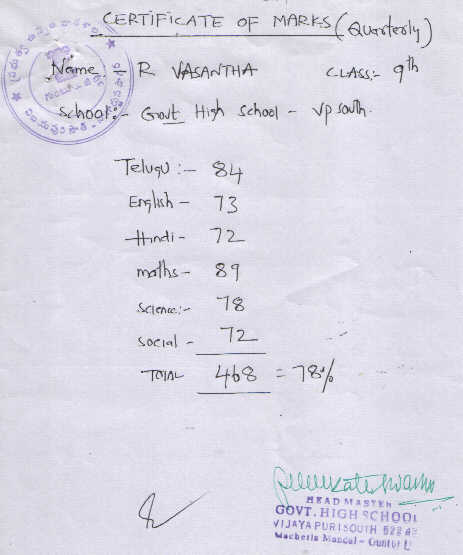 CERTIFICATE OF MARKS (Quarterly)
Name :- R VASANTHA CLASS:- 9th
School:- Govt High School - VP South.
Telugu :- 84
English - 73
Hindi - 72
maths - 89
Science:- 78
Social - 72
TOTAL 468 = 78%
HEAD MASTER
GOVT. HIGH SCHOOL
VIJAYA PURI SOUTH 522
Macherla Mandal - Guntur